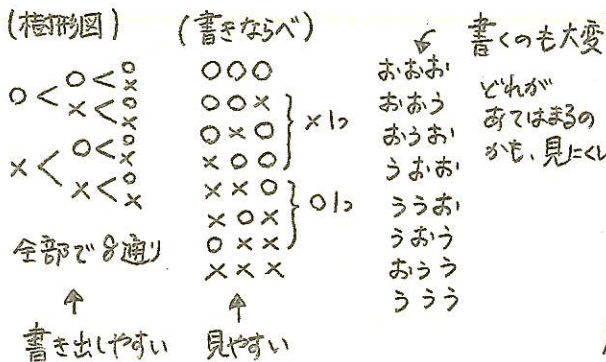 (樹形図)
○ < ○ < ○
×
× < ○
×
× < ○ < ○
×
× < ○
×
全部で8通り
↑
書き出しやすい
(書きならべ)
○○○
○○×
○×○
×○○
×1つ
××○
×○×
○××
○1つ
×××
↑
見やすい
おおお
おおう
おうお
うおお
ううお
うおう
おうう
ううう
書くのも大変
どれが
あてはまるの
かも、見にくい